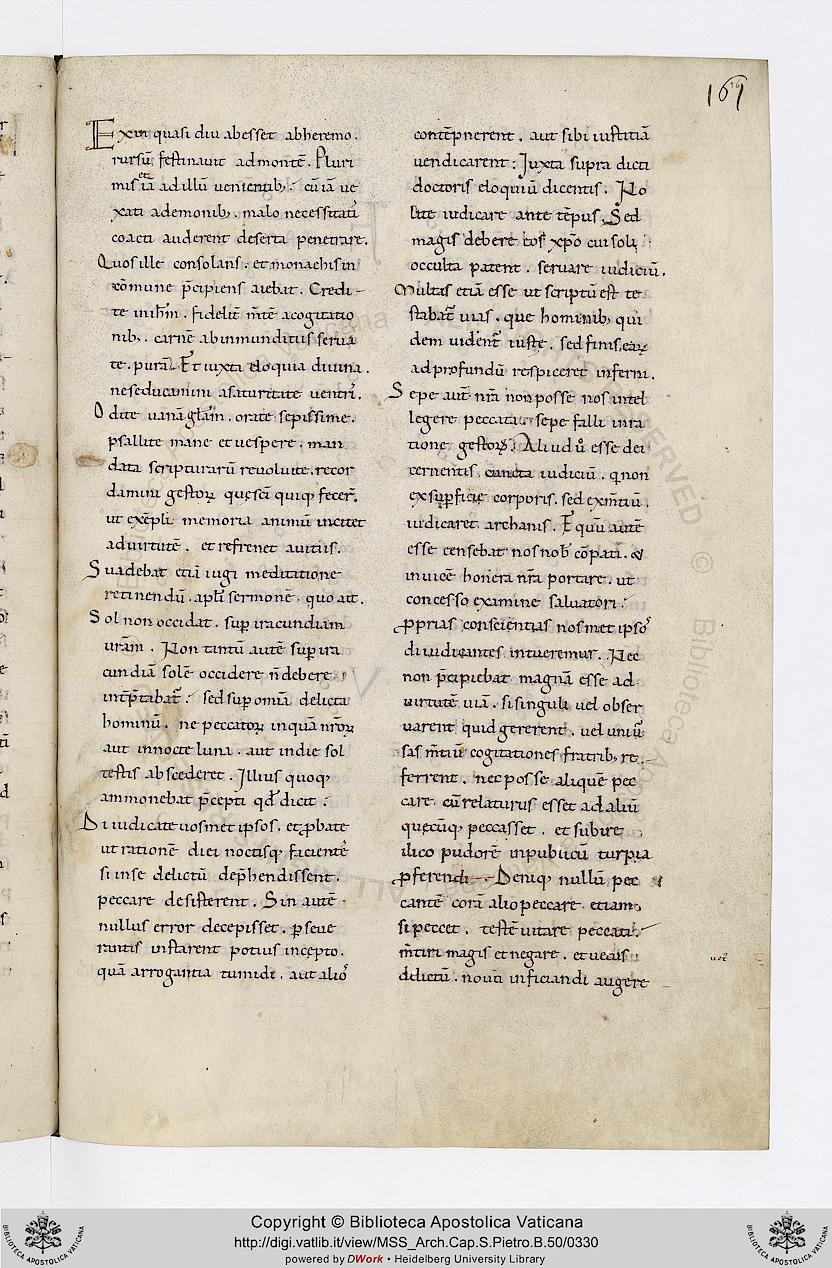 167
Exin quasi diu abesset abheremo.
rursū festinauit admontē. Pluri
mis etiā adillū uenientib; cū iā ue
xati ademonib;. malo necessitatū
coacti auderent deserta penetrare.
Quos ille consolans. et monachis in
cōmune p̄cipiens aiebat. Credi-
te inihm̄. fideliū m̄te acogitatio
nib;. carnē abinmunditiis serua
te. purā. Et iuxta eloquia diuina.
neseducamini asaturitate uentri.
Odite uanā gl̄am. orate sepissime.
psallite mane et uespere. man
data scripturarū reuoluite. recor
damini gestoꝝ que sc̄i quiq; fecer̄.
ut exēpli memoria animū incitet
aduirtutē. et refrenet auitiis.
Suadebat etiā iugi meditatione
retinendū. apl̄i sermonē. quo ait.
Sol non occidat. suꝑ iracundiam
urām. Non tantū autē suꝑ ira
cundiā solē occidere n̄ debere
int̄p̄tabat̄. sed suꝑ omīa delicta
hominū. ne peccatoꝝ inquā nr̄oꝝ
aut innocte luna. aut indie sol
testis abscederet. Illius quoq;
ammonebat p̄cepti qd̄ dicit.
Diiudicate uosmet ipsos. et ꝓbate
ut rationē diei noctisq; facientē
si inse delictū dep̄hendissent.
peccare desisterent. Sin autē
nullus error decepisset. ꝑseue
rantis instarent potius incepto.
quā arrogantia tumidi. aut alios
contēpnerent. aut sibi iustitiā
uendicarent: Juxta supra dicti
doctoris eloquiū dicentis. No
lite iudicare ante tēpus. Sed
magis debere eos xp̄o cui soli
occulta patent. seruare iudiciū.
Multas etiā esse ut scriptū est te
stabat̄ uias. que hominib; qui
dem uident̄ iuste. sed finis eaꝝ
adprofundū respiceret inferni.
Sepe aut̄ nr̄a non posse nos intel
legere peccata. sepe falli inra
tione gestoꝝ. Aliud ū esse dei
cernentis cuncta iudiciū. q non
exsuꝑficie corporis. sed exm̄tiū.
iudicaret archanis. Equū autē
esse censebat nos nob̄ cōpati. &
inuicē honera nr̄a portare. ut
concesso examine saluatori.
ꝓprias conscientias nosmet ipsos
diiudicantes intueremur. Nec
non p̄cipiebat magnā esse ad
uirtutē uiā. si singuli uel obser
uarent quid gererent. uel uniū
sas m̄tiū cogitationes fratrib; re
ferrent. nec posse aliquē pec
care. cū relaturus esset ad aliū
quecūq; peccasset. et subire
ilico pudorē inpublicū turpia
ꝓferendi. Deniq; nullū pec
cantē corā alio peccare. etiam
si peccet. testē uitare peccati.
m̄tiri magis et negare. et uetus
delictū. nouā inficiandi augere
Copyright © Biblioteca Apostolica Vaticana
http://digi.vatlib.it/view/MSS_Arch.Cap.S.Pietro.B.50/0330
powered by DWork • Heidelberg University Library
BIBLIOTECA APOSTOLICA VATICANA
BIBLIOTECA APOSTOLICA VATICANA